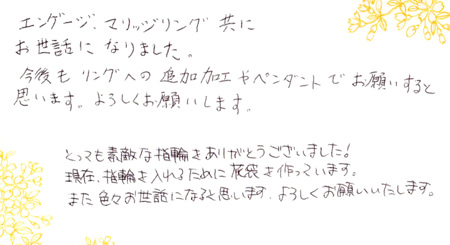 エンゲージ、マリッジリング 共に
お世話に なりました。
今後も リングへの 追加加工やペンダントで お願いすると
思います。よろしくお願いします。
とっても素敵な指輪をありがとうございました!
現在、指輪を入れるために 花袋を作っています。
また色々お世話になると思います。よろしくお願いいたします。